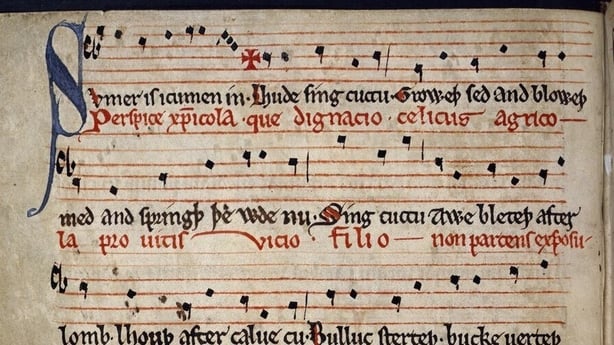 Sumer is icumen in· Lhude sing cuccu· Groweþ sed and bloweþ
Perspice xp̄icola· que dignacio· celicus agrico—
med and springþ þe wde nu· Sing cuccu Awe bleteþ after
la pro uitis vicio filio— non parcens exposu-
lomb· lhouþ after calue cu· Bulluc sterteþ· bucke uerteþ